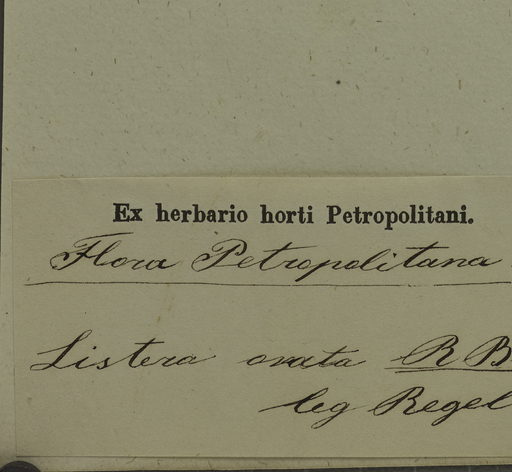 Ex herbario horti Petropolitani.
Flora Petropolitana
Listera ovata R B
leg Regel